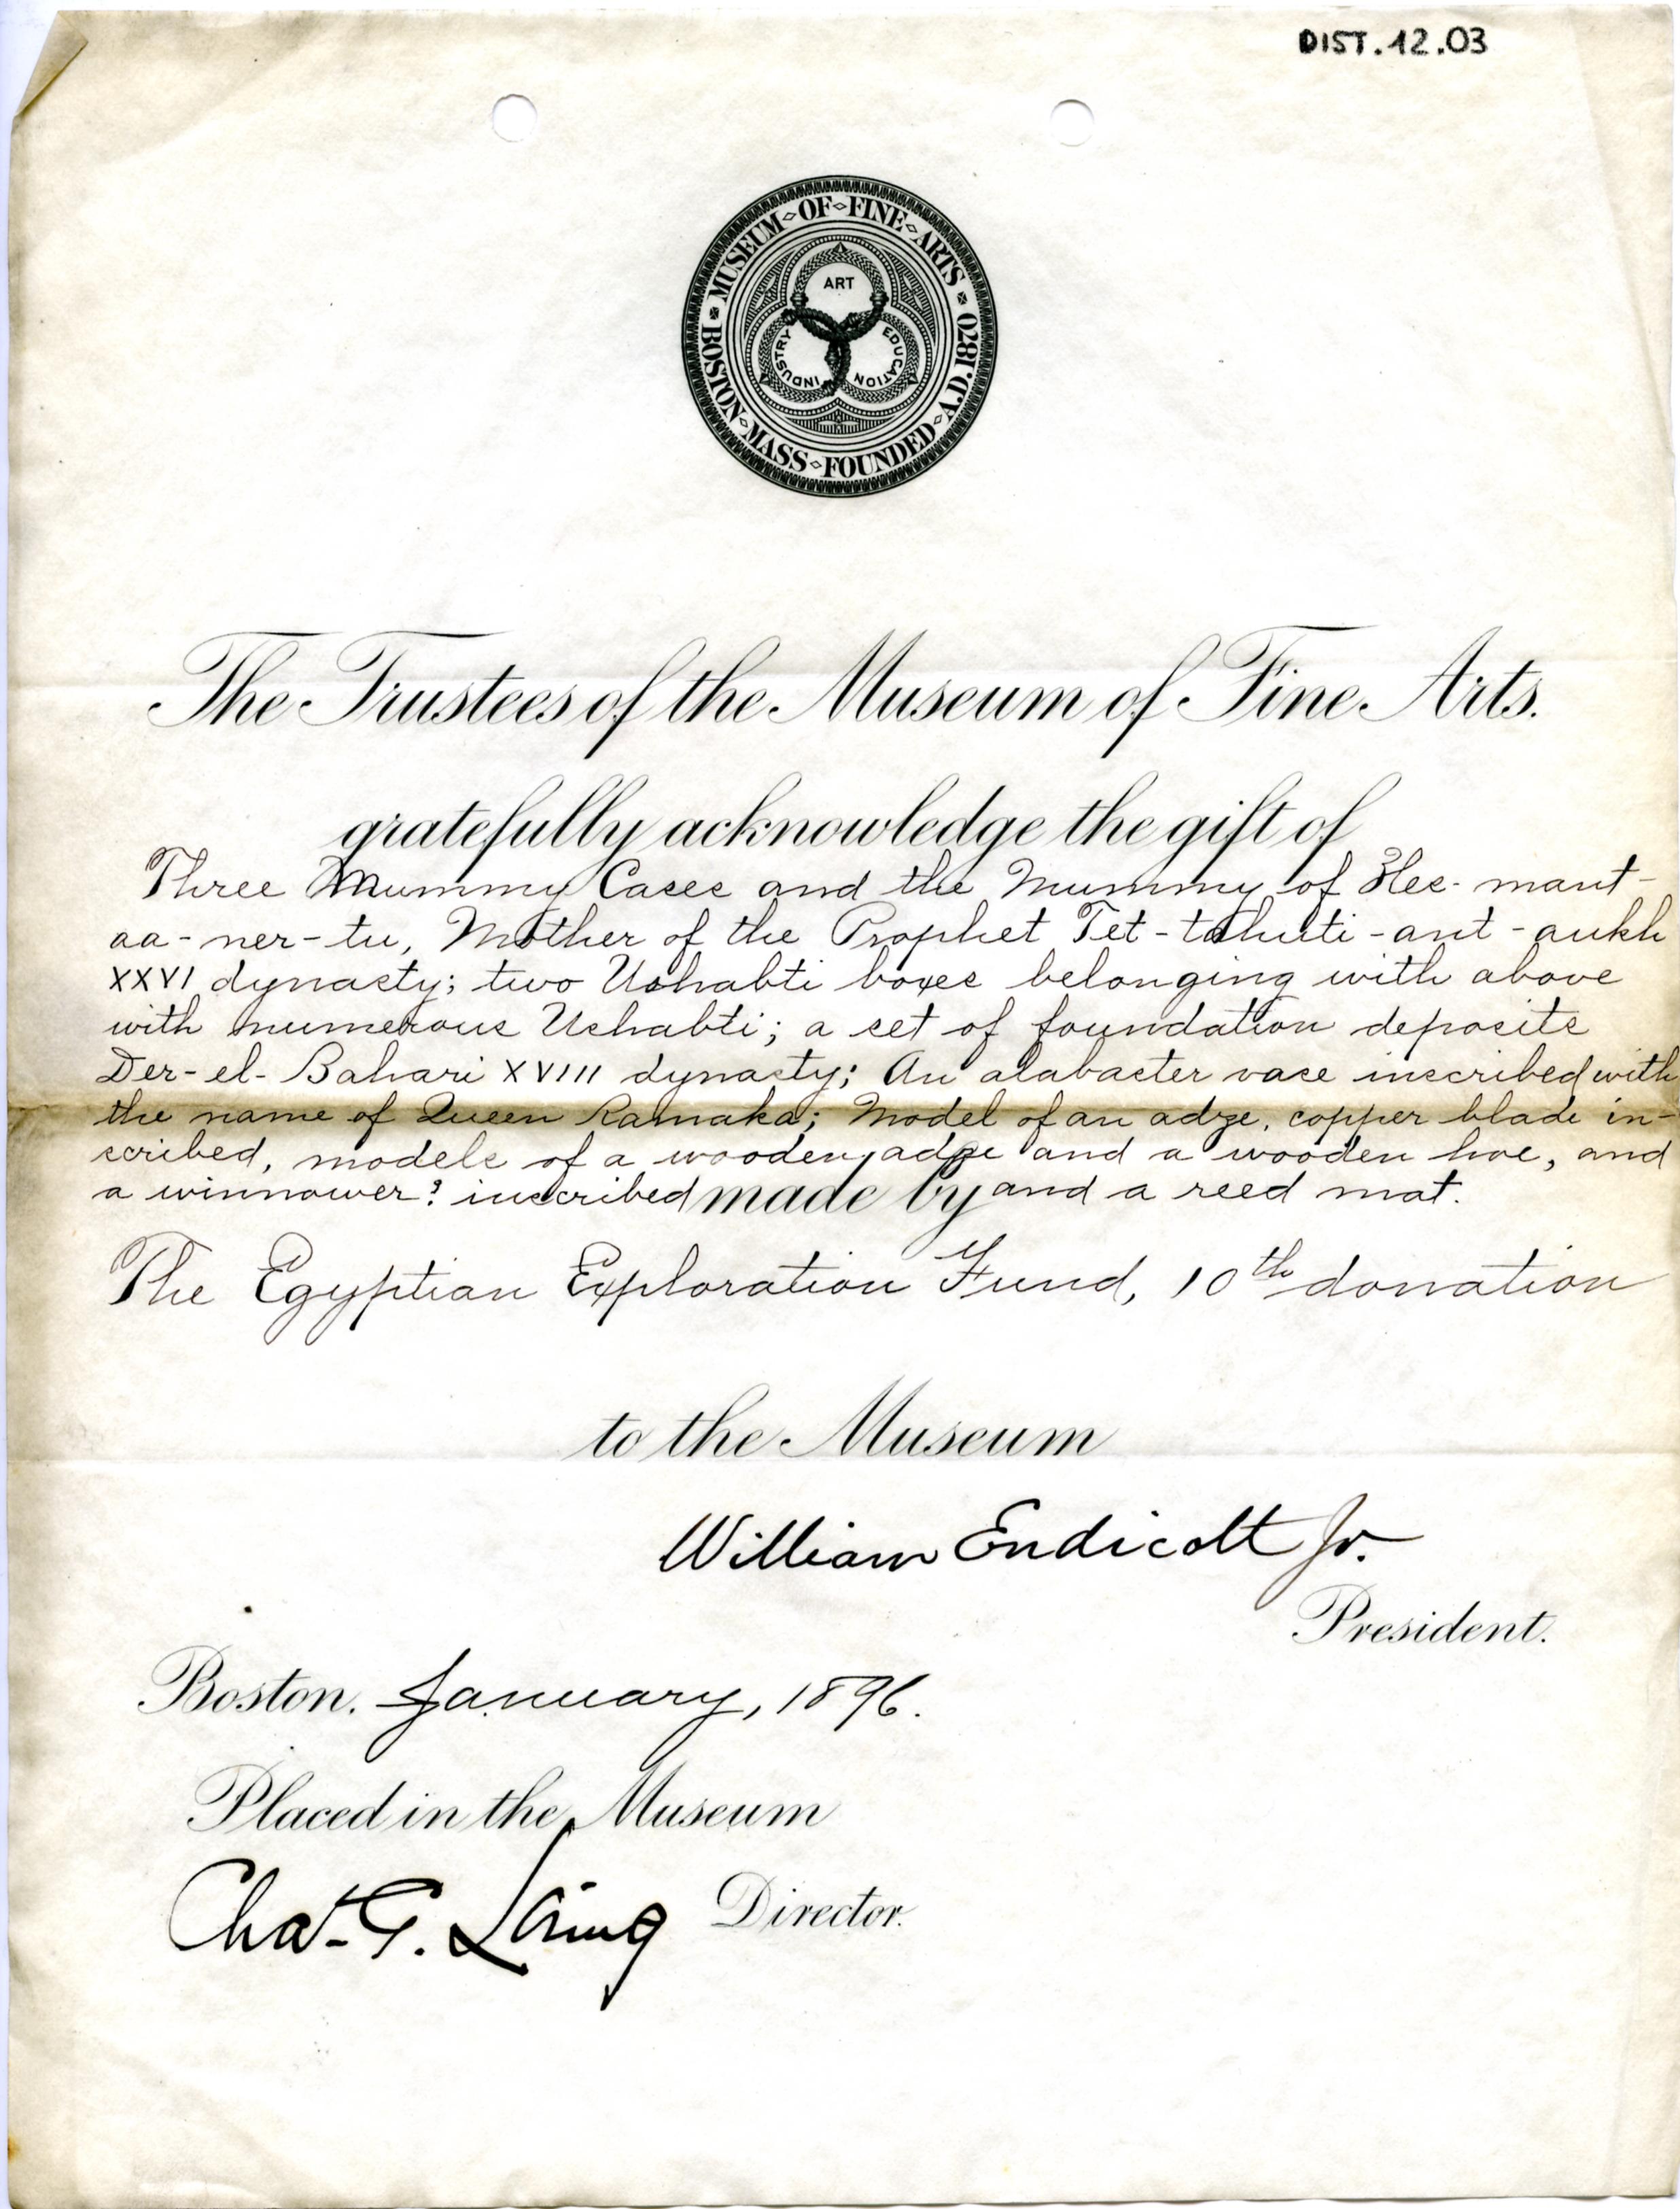 DIST.12.03
BOSTON MUSEUM OF FINE ARTS
MASS FOUNDED A.D. 1870
ART
INDUSTRY EDUCATION
The Trustees of the Museum of Fine Arts.
gratefully acknowledge the gift of
Three Mummy Cases and the Mummy of mant-
aa-ner-tu, Mother of the Prophet Tet-tahuti-ant-aukh
XXVI dynasty; two Ushabti boxes belonging with above
with numerous Ushabti; a set of foundation deposits
Der-el-Bahari XVIII dynasty; An alabaster vase inscribed with
the name of Queen Ramaka; Model of an adze, copper blade in-
scribed, models of a wooden adze and a wooden hoe, and
a winnower? inscribed made by and a reed mat.
The Egyptian Exploration Fund, 10th donation
to the Museum
William Endicott Jr.
President.
Boston. January, 1896.
Placed in the Museum
Chas. G. Loring Director.